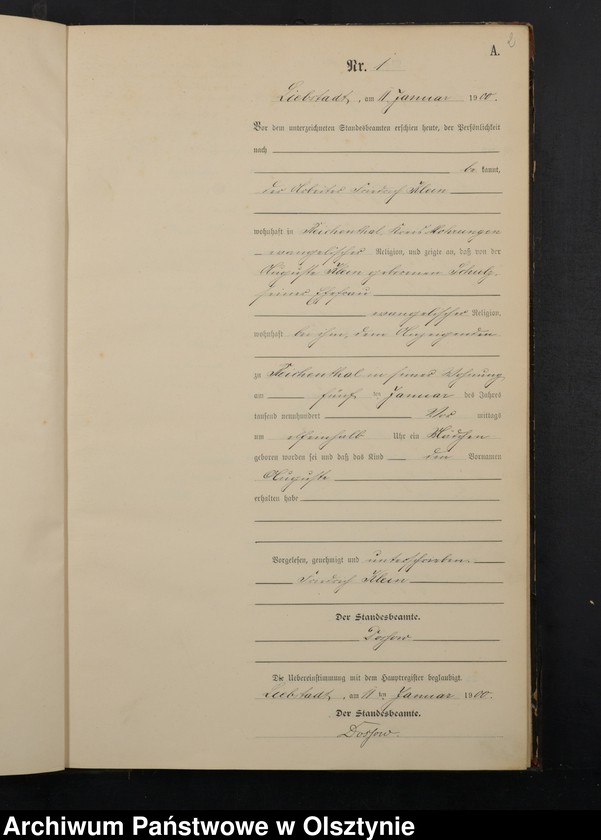 2
A.
Nr. 1
Liebstadt, am 11. Januar 1900.
Vor dem unterzeichneten Standesbeamten erschien heute, der Persönlichkeit
nach
be kannt,
der Arbeiter Friedrich Klein
wohnhaft in Reichenthal, Kreis Mohrungen
evangelischer Religion, und zeigte an, daß von der
Auguste Klein geborenen Schulz,
seiner Ehefrau
evangelischer Religion,
wohnhaft bei ihm, dem Anzeigenden
zu Reichenthal in seiner Wohnung,
am fünf ten Januar des Jahres
tausend neunhundert Vor mittags
um elfeinhalb Uhr ein Mädchen
geboren worden sei und daß das Kind den Vornamen
Auguste
erhalten habe
Vorgelesen, genehmigt und unterschrieben
Friedrich Klein
Der Standesbeamte.
Die Uebereinstimmung mit dem Hauptregister beglaubigt.
Liebstadt, am 11 ten Januar 1900.
Der Standesbeamte.
Archiwum Państwowe w Olsztynie